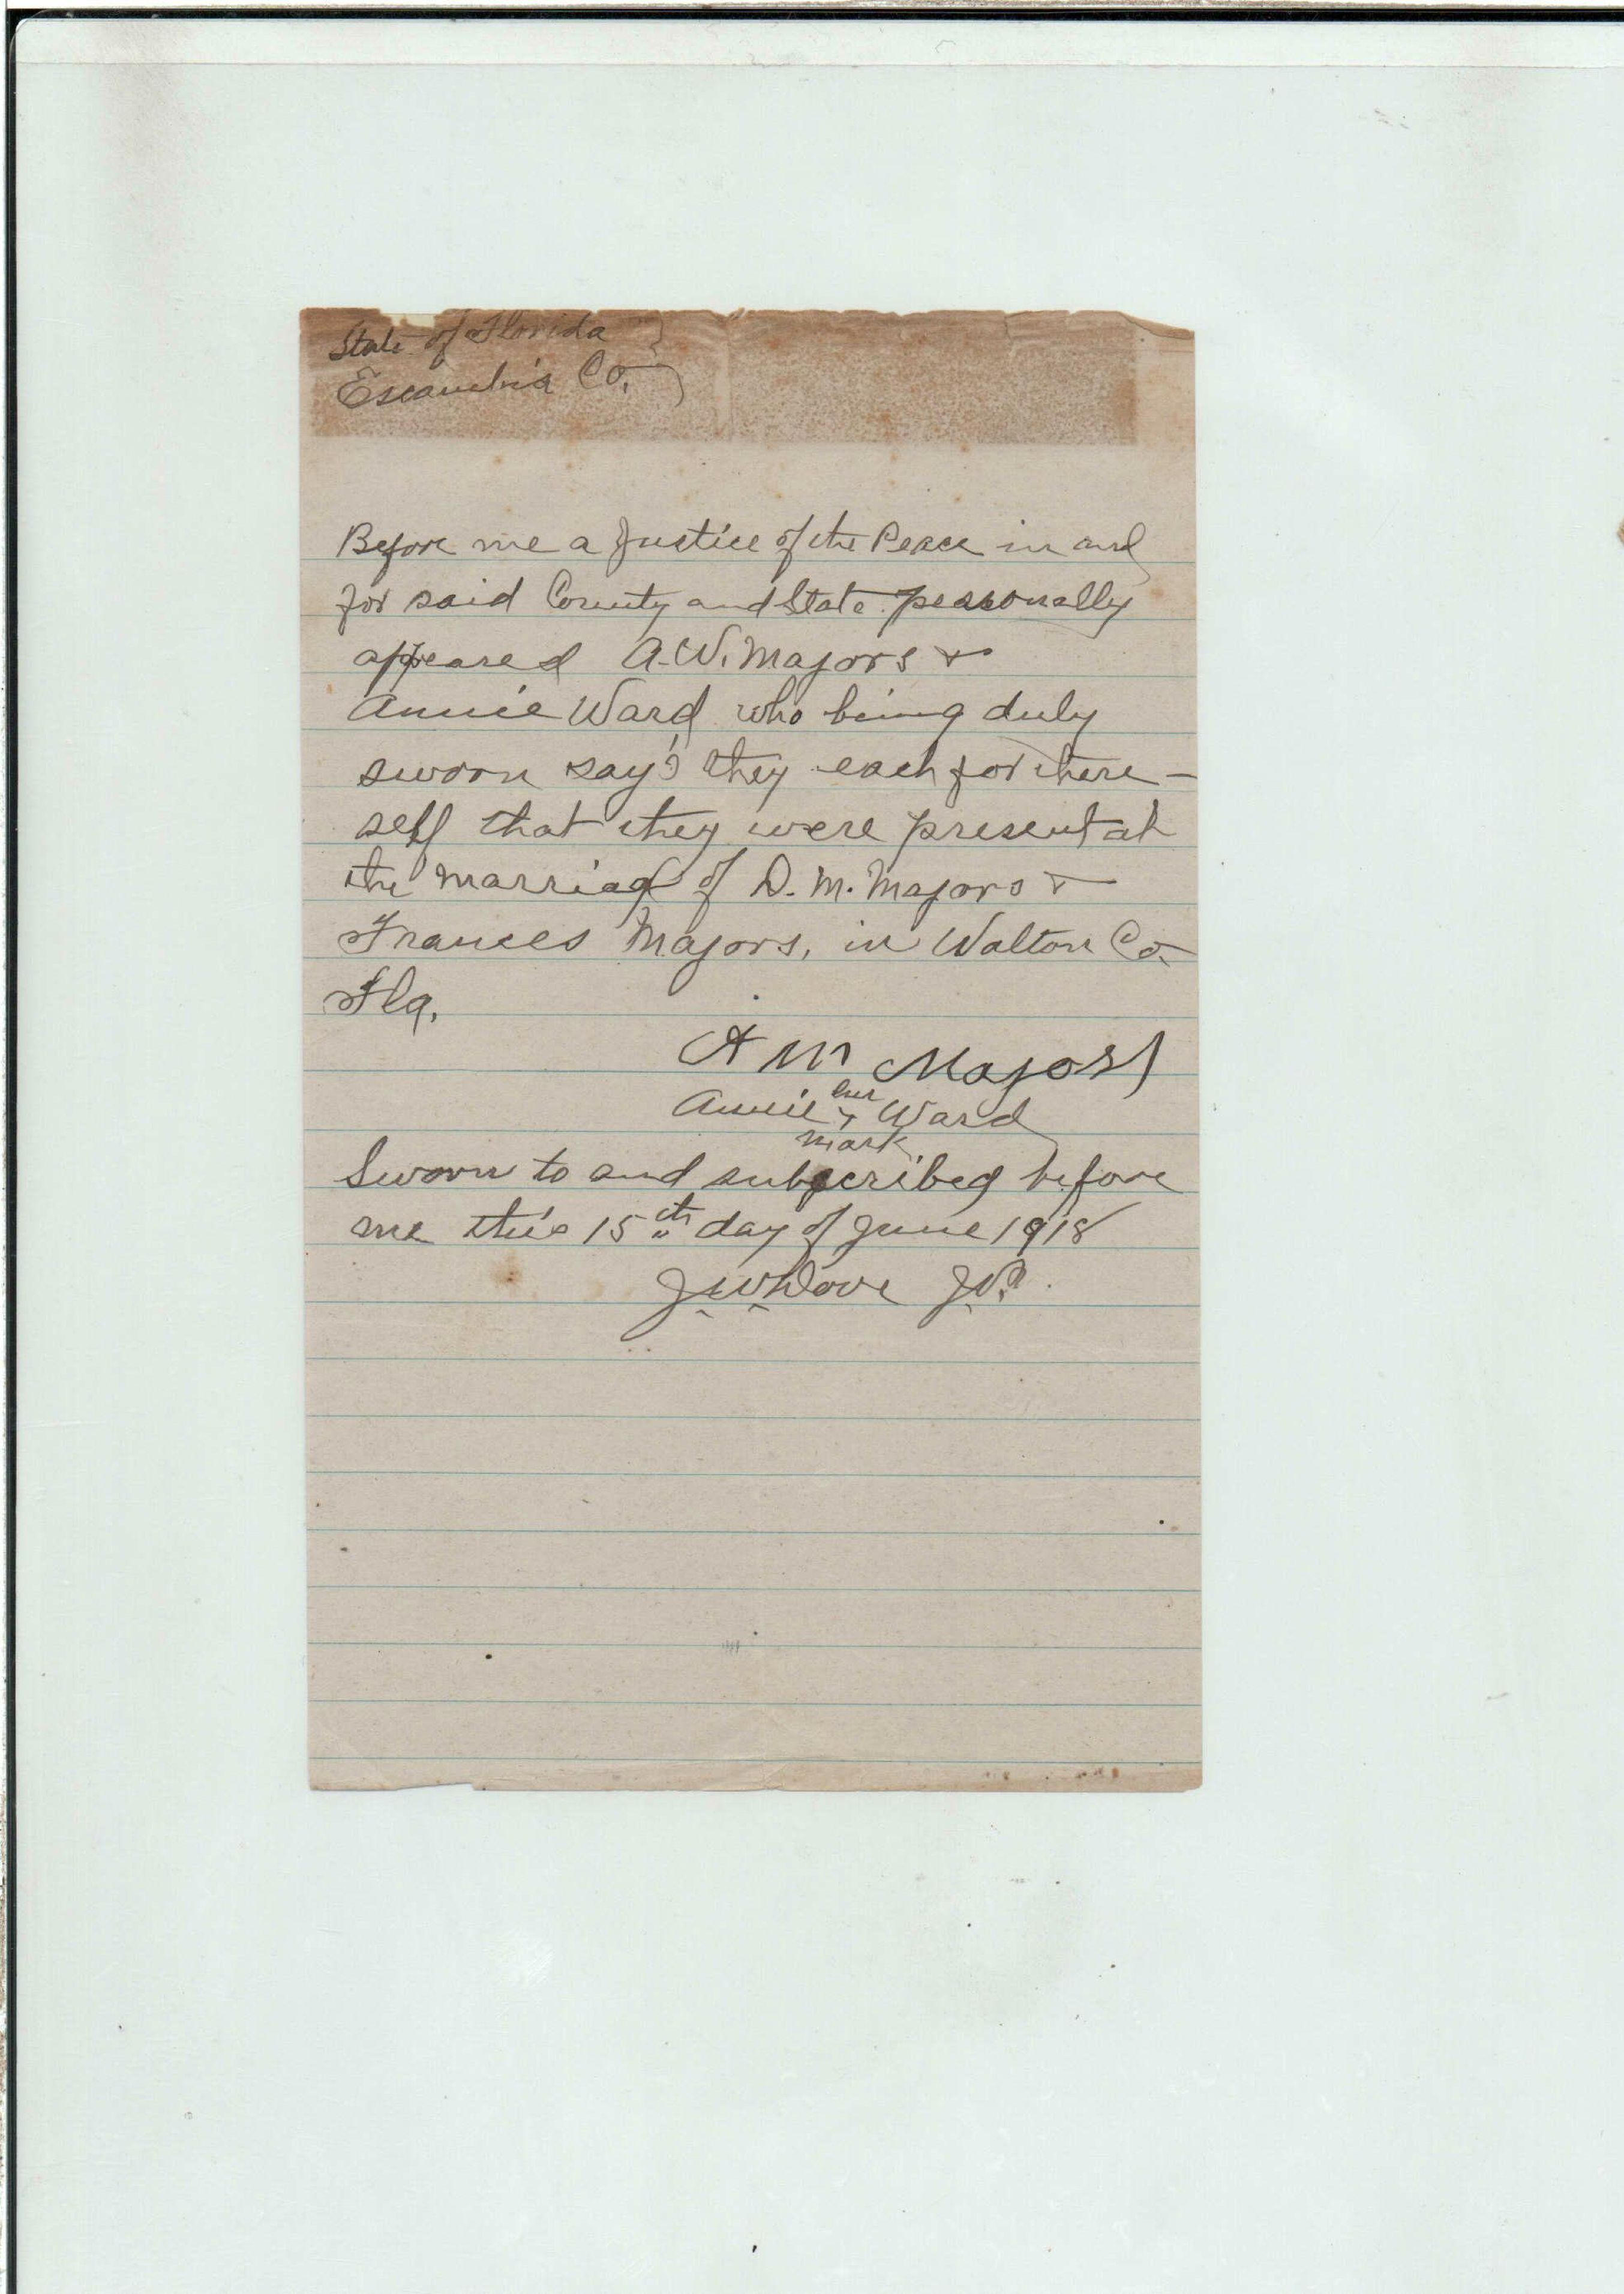 State of Florida
Escambia Co.
Before me a Justice of the Peace in and
for said County and State personally
appeared A. W. Majors &
Annie Ward who being duly
sworn say's they each for there-
self that they were present at
the marriag of D. M. Majors &
Frances Majors, in Walton Co.
Fla.
A M Majors
her
Annie x Ward
mark
Sworn to and subscribed before
me this 15th day of June 1918
J W Dove J.P.